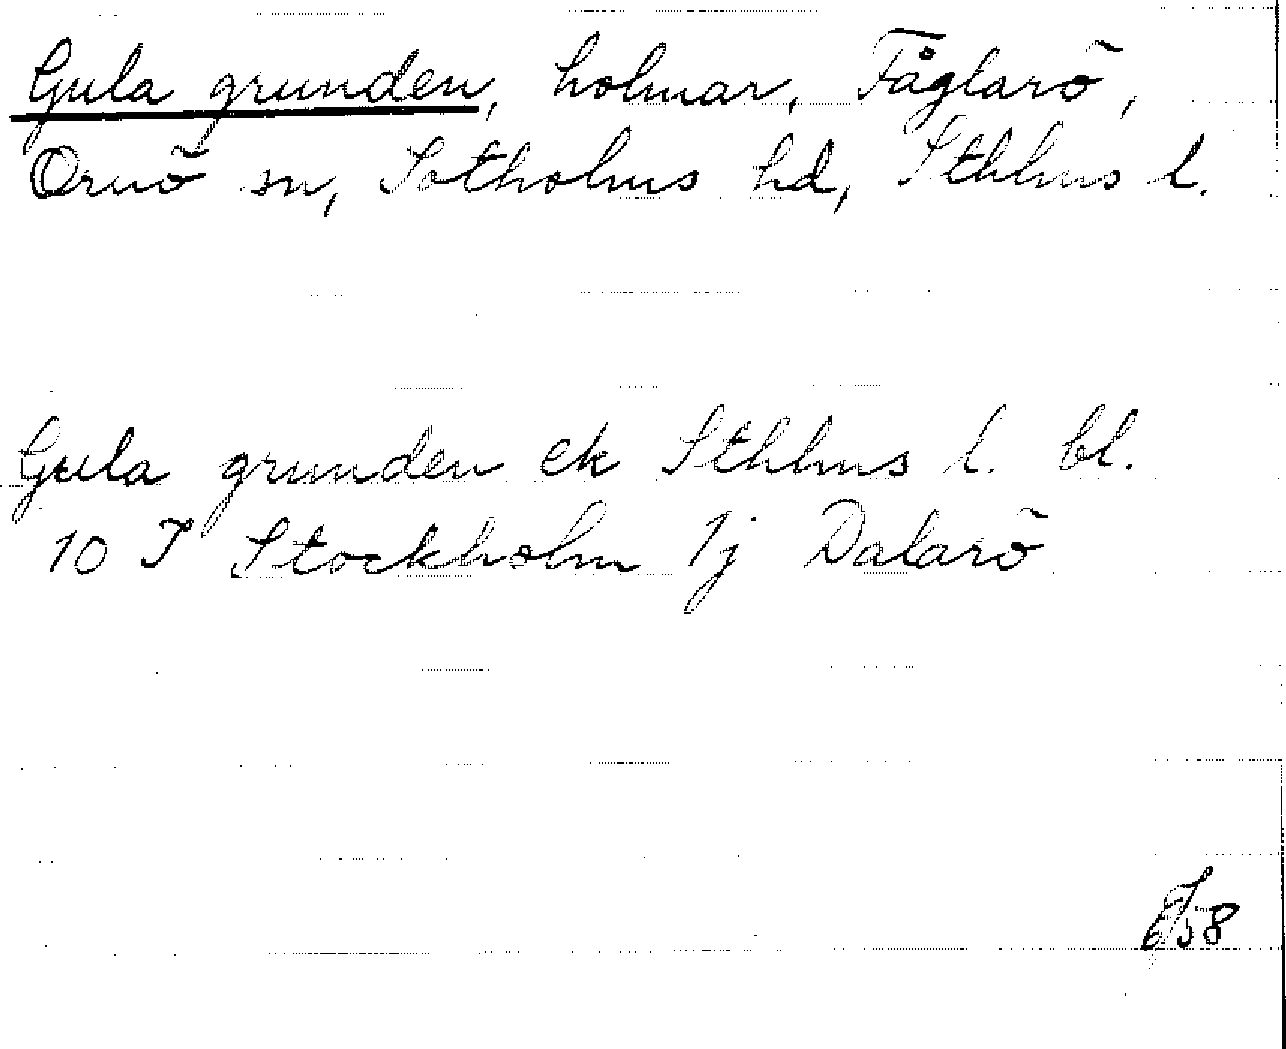 Gula grunden, holmar, Fåglarö,
Ornö sn, Sotholms hd, Sthlms l.
Gula grunden ek Sthlms l. bl.
10 I Stockholm 1j Dalarö